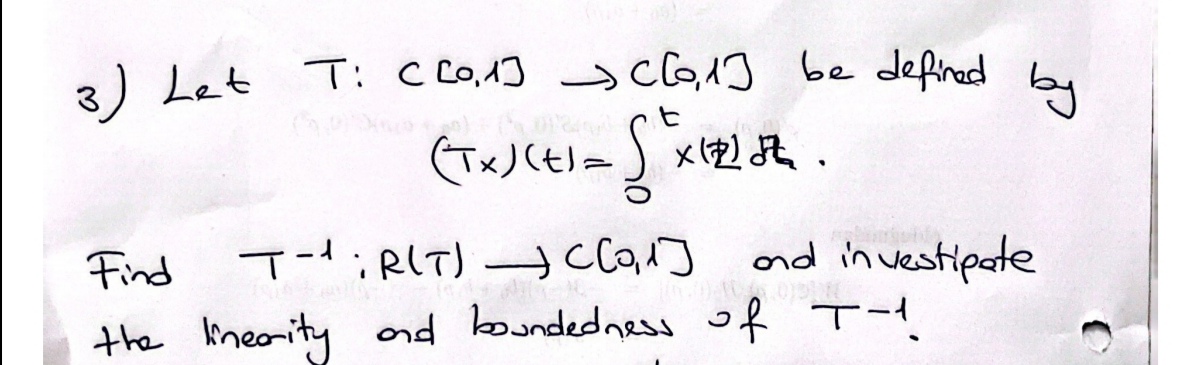 3) Let T: C[0,1] → C[0,1] be defined by
(Tx)(t) = ∫₀ᵗ x(τ) dτ .
Find T⁻¹ : R(T) → C[0,1] and investipate
the linearity and boundedness of T⁻¹.